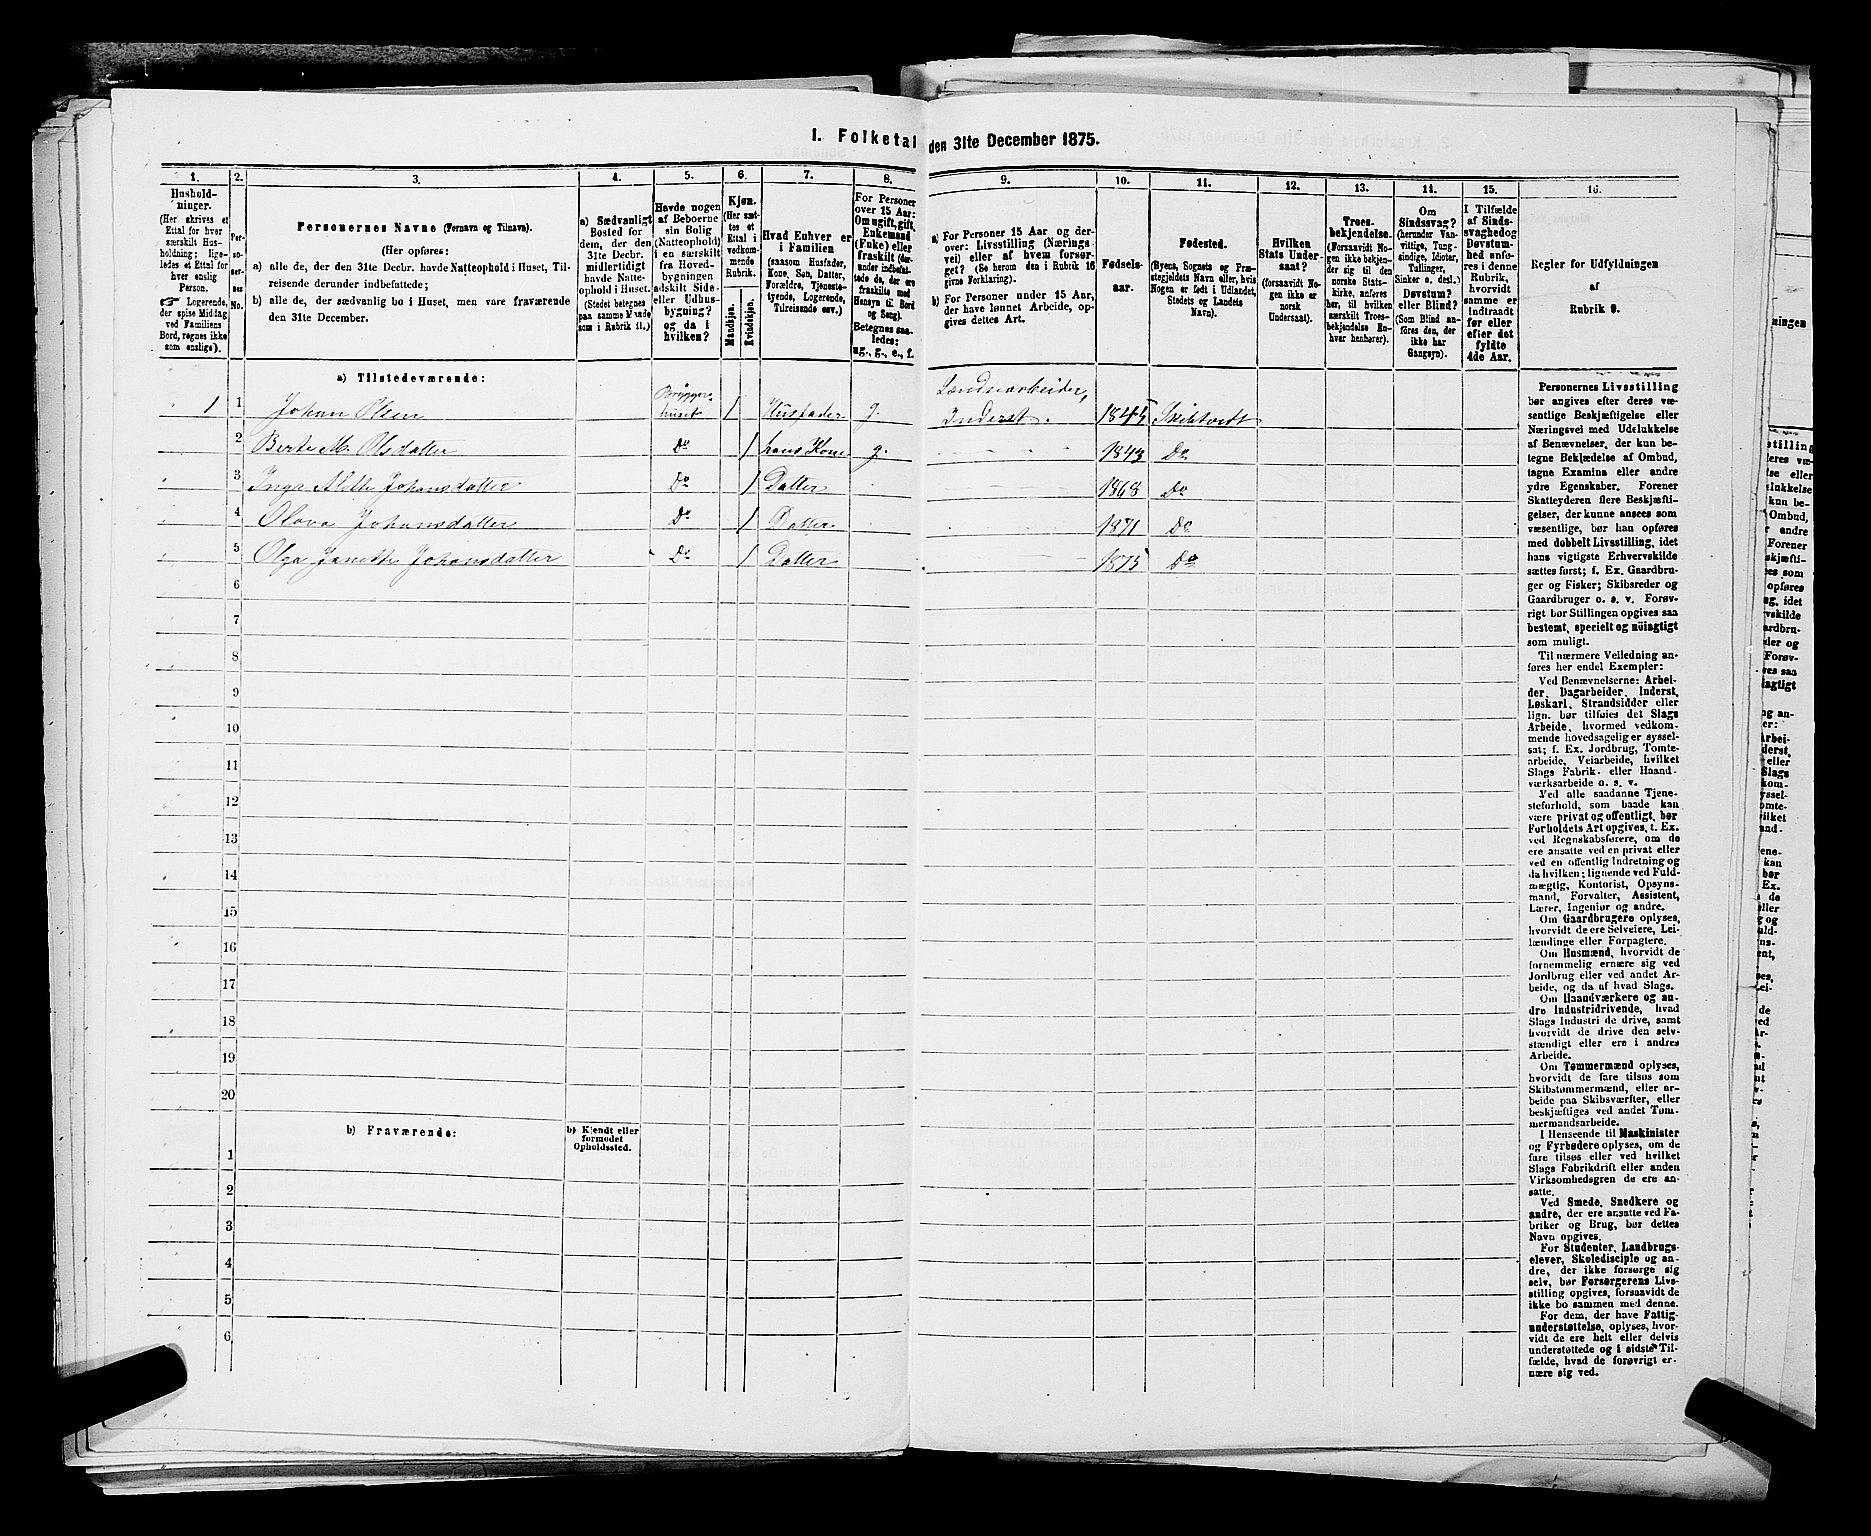 I. Folketal den 31te December 1875.
1.
Hushold-
ninger.
(Her skrives et
Ettal for hver
særskilt Hus-
holdning; lige-
ledes et Ettal for
hver enslig
Person.
☞ Logerende,
der spise Middag
ved Familiens
Bord, regnes ikke
som enslige).
2.
Per-
so-
ner-
nes
No.
3.
Personernes Navne (Fornavn og Tilnavn).
(Her opføres:
a) alle de, der den 31te Decbr. havde Natteophold i Huset, Til-
reisende derunder indbefattede;
b) alle de, der sædvanlig bo i Huset, men vare fraværende
den 31te December.
4.
a) Sædvanligt
Bosted for
dem, der den
31te Decbr.
midlertidigt
havde Natte-
ophold i Huset.
(Stedet betegnes
paa samme Maade
som i Rubrik 11.)
5.
Havde nogen
af Beboerne
sin Bolig
(Natteophold)
i en særskilt
fra Hoved-
bygningen
adskilt Side-
eller Udhus-
bygning?
og da i
hvilken?
6.
Kjøn.
(Her sæt-
tes et
Ettal i
vedkom-
mende
Rubrik.
Mandkjøn.
Kvindekjøn.
7.
Hvad Enhver er
i Familien
(saasom Husfader,
Kone, Søn, Datter,
Forældre, Tjeneste-
tyende, Logerende,
Tilreisende osv.)
8.
For Personer
over 15 Aar:
Om ugift, gift,
Enkemand
(Enke) eller
fraskilt (der-
under indbefat-
tede de, der ere
fraskilte med
Hensyn til Bord
og Seng).
Betegnes saa-
ledes:
ug., g., e., f.
9.
a) For Personer 15 Aar og der-
over: Livsstilling (Nærings-
vei) eller af hvem forsør-
get? (Se herom den i Rubrik 16
givne Forklaring).
b) For Personer under 15 Aar,
der have lønnet Arbeide, op-
gives dettes Art.
10.
Fødsels-
aar.
11.
Fødested.
(Byens, Sognets og Præ-
stegjeldets Navn eller, hvis
Nogen er født i Udlandet,
Stedets og Landets
Navn).
12.
Hvilken
Stats Under-
saat?
(forsaavidt No-
gen ikke er
norsk
Undersaat).
13.
Troes-
bekjendelse.
(Forsaavidt No-
gen ikke bekjen-
der sig til den
norske Stats-
kirke, anføres
her, til hvilken
særskilt Troes-
bekjendelse En-
hver henhører).
14.
Om
Sindssvag?
(herunder Van-
vittige, Tung-
sindige, Idioter,
Tullinger,
Sinker o. desl.)
Døvstum?
eller Blind?
(Som Blind an-
føres den, der
ikke har
Gangsyn).
15.
I Tilfælde
af Sinds-
svaghed og
Døvstum-
hed anfø-
res i denne
Rubrik,
hvorvidt
samme er
indtraadt
før eller
efter det
fyldte
4de Aar.
16.
Regler for Udfyldningen
af
Rubrik 9.
a) Tilstedeværende:
1 1 Johan Olsen Brygger- huset 1 Husfader g. Landarbeider, Inderst. 1845 Skibtvedt
2 Berte M. Olsdatter Do 1 hans Kone g. 1843 Do
3 Inga Alette Johansdatter Do 1 Datter 1868 Do
4 Olava Johansdatter Do 1 Datter 1871 Do
5 Olga Janette Johansdatter Do 1 Datter 1875 Do
6
7
8
9
10
11
12
13
14
15
16
17
18
19
20
b) Fraværende:
b) Kjendt eller
formodet
Opholdssted.
1
2
3
4
5
6
Personernes Livsstilling
bør angives efter deres væ-
sentlige Beskjæftigelse eller
Næringsvei med Udelukkelse
af Benævnelser, der kun be-
tegne Beklædelse af Ombud,
tagne Examina eller andre
ydre Egenskaber. Forener
Skatteyderen flere Beskjæfti-
gelser, der kunne ansees som
væsentlige, bør han opføres
med dobbelt Livsstilling, idet
hans vigtigste Erhvervskilde
sættes først; f. Ex. Gaardbru-
ger og Fisker; Skibsreder og
Gaardbruger o. s. v. Forøv-
rigt bør Stillingen opgives saa
bestemt, specielt og nöiagtigt
som muligt.
Til nærmere Veiledning an-
føres her endel Exempler:
Ved Benævnelserne: Arbei-
der, Dagarbeider, Inderst,
Løskarl, Strandsidder eller
lign. bør tilføies det Slags
Arbeide, hvormed vedkom-
mende hovedsagelig er syssel-
sat; f. Ex. Jordbrug, Tomte-
arbeide, Veiarbeide, hvilket
Slags Fabrik- eller Haand-
værksarbeide o. s. v.
Ved alle saadanne Tjene-
steforhold, som baade kan
være privat og offentligt, bør
Forholdets Art opgives, t. Ex.
ved Regnskabsførere, om de
ere ansatte ved en privat eller
ved en offentlig Indretning og
da hvilken; lignende ved Fuld-
mægtig, Kontorist, Opsyns-
mand, Forvalter, Assistent,
Lærer, Ingeniør og andre.
Om Gaardbrugere oplyses,
hvorvidt de ere Selveiere, Lei-
lændinge eller Forpagtere.
Om Husmænd, hvorvidt de
fornemmelig ernære sig ved
Jordbrug eller ved andet Ar-
beide, og da af hvad Slags.
Om Haandværkere og an-
dre Industridrivende, hvad
Slags Industri de drive, samt
hvorvidt de drive den selv-
stændigt eller ere i andres
Arbeide.
Om Tømmermænd oplyses,
hvorvidt de fare tilsøs som
Skibstømmermænd, eller ar-
beide paa Skibsværfter, eller
beskjæftiges ved andet Tøm-
mermandsarbeide.
I Henseende til Maskinister
og Fyrbødere oplyses, om de
fare tilsøs eller ved hvilket
Slags Fabrikdrift eller anden
Virksomhedsgren de ere an-
satte.
Ved Smede, Snedkere og
andre, der ere ansatte ved Fa-
briker og Brug, bør dettes
Navn opgives.
For Studenter, Landbrugs-
elever, Skoledisciple og an-
dre, der ikke forsørge sig
selv, bør Forsørgerens Livs-
stilling opgives, forsaavidt de
ikke bo sammen med denne.
For dem, der have Fattig-
understøttelse, oplyses, hvor-
vidt de ere helt eller delvis
understøttede og i sidste Til-
fælde, hvad de forøvrigt er-
nære sig ved.